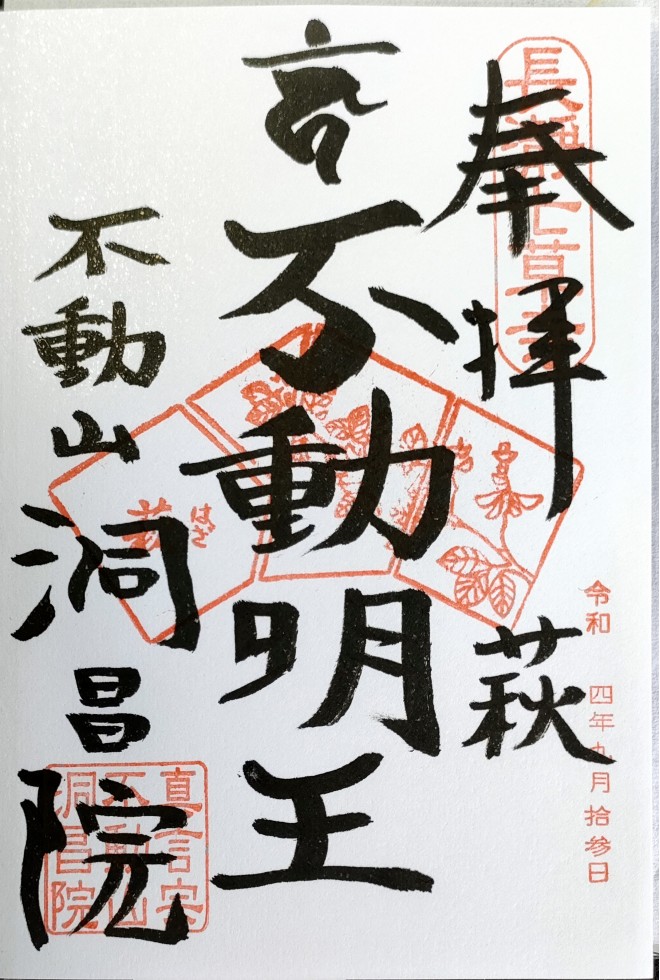 奉拝
萩
不動明王
不動山
洞昌院
長瀞七草寺
はぎ
萩
令和四年九月拾参日
真言宗
不動山
洞昌院